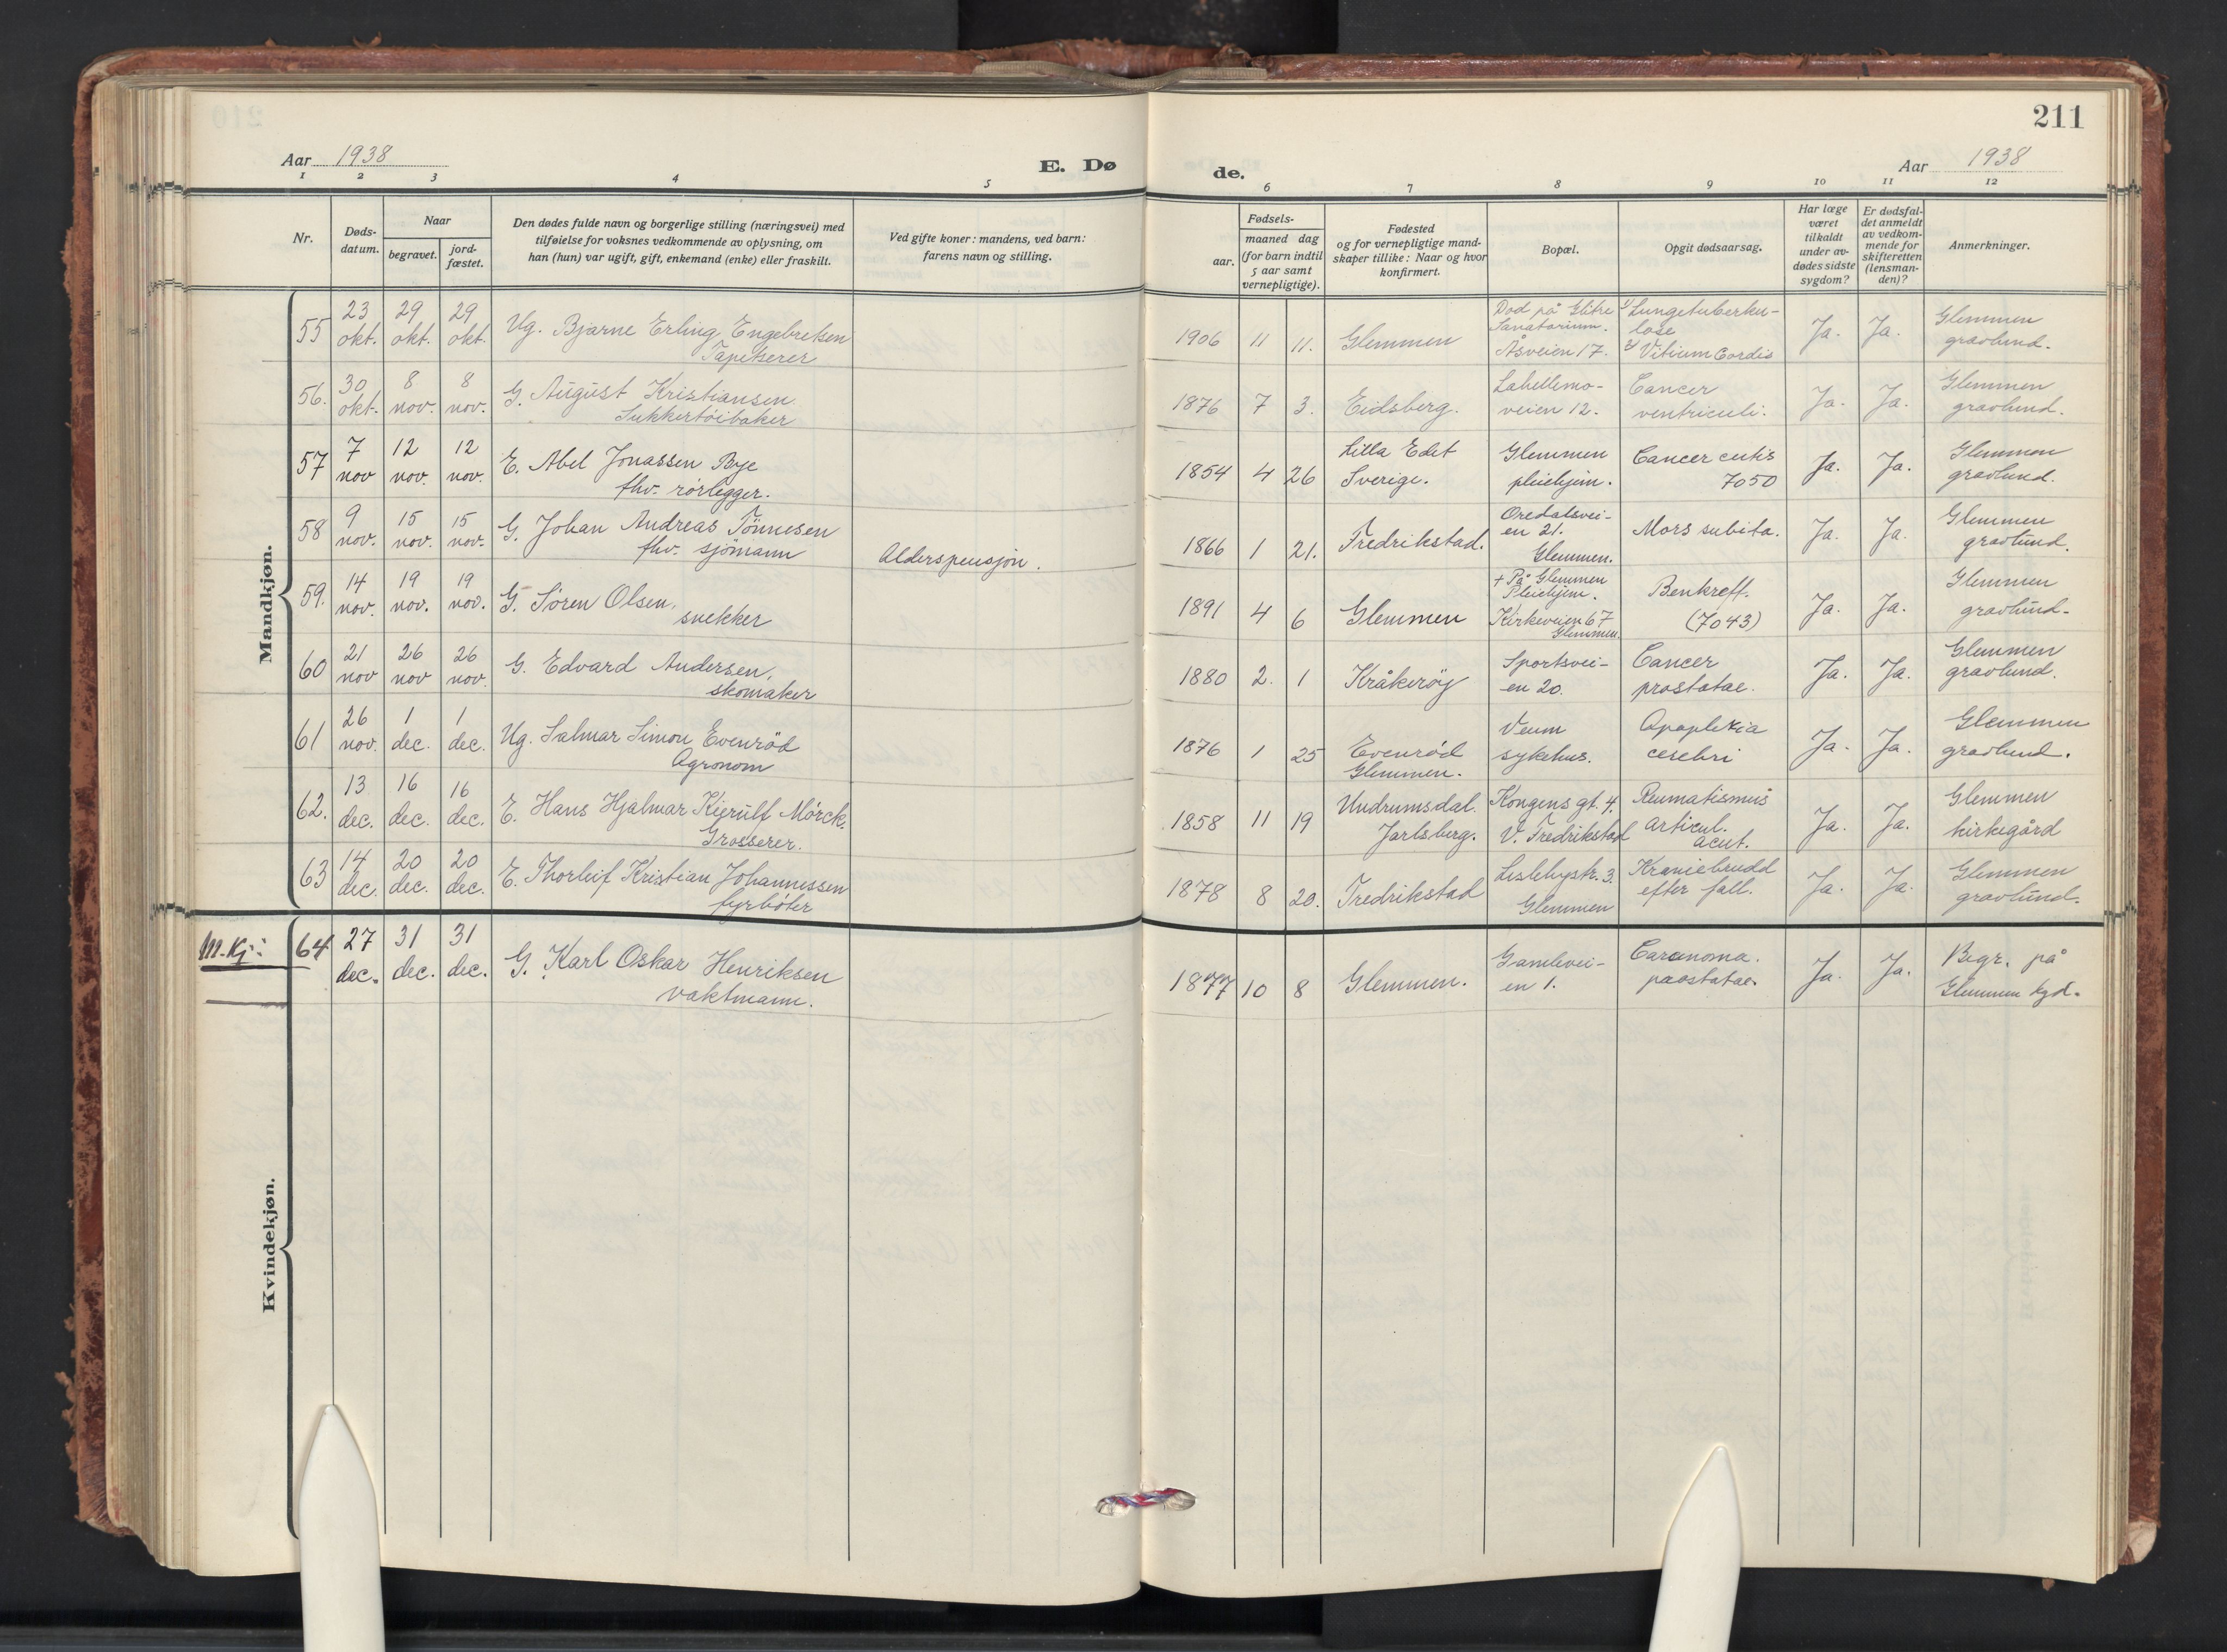 211
Aar 1938
E. Dø
de.
Aar 1938
1 2 3 4 5
6 7 8 9 10 11 12
Nr.
Døds-
datum.
Naar
begravet.
jord-
fæstet.
Den dødes fulde navn og borgerlige stilling (næringsvei) med
tilføielse for voksnes vedkommende av oplysning, om
han (hun) var ugift, gift, enkemand (enke) eller fraskilt.
Ved gifte koner: mandens, ved barn:
farens navn og stilling.
Fødsels-
aar.
maaned dag
(for barn indtil
5 aar samt
vernepligtige).
Fødested
og for vernepligtige mand-
skaper tillike: Naar og hvor
konfirmert.
Bopæl.
Opgit dødsaarsag.
Har læge
været
tilkaldt
under av-
dødes sidste
sygdom?
Er dødsfal-
det anmeldt
av vedkom-
mende for
skifteretten
(lensman-
den)?
Anmerkninger.
Mandkjøn.
55
23
okt.
29
okt.
29
okt.
Ug. Bjarne Erling Engebretsen
Tapetserer
1906 11 11. Glemmen
Død på Glitre
Sanatorium.
Åsveien 17.
1) Lungetuberku-
lose
2) Vitium Cordis
Ja. Ja.
Glemmen
gravlund.
56.
30
okt.
8
nov.
8
nov.
G. August Kristiansen
Sukkertøibaker
1876 7 3. Eidsberg.
Labellemo-
veien 12.
Cancer
ventriculi.
Ja. Ja.
Glemmen
gravlund.
57
7
nov
12
nov.
12
nov.
E. Abel Jonassen Bye
fhv. rørlegger.
1854 4 26
Lilla Edet
Sverige.
Glemmen
pleiehjem.
Cancer cutis
7050
Ja. Ja.
Glemmen
gravlund.
58
9
nov.
15
nov.
15
nov.
G. Johan Andreas Tönnesen
fhv. sjömann
Alderspensjon.
1866 1 21. Fredrikstad.
Oredalsvei-
en 21.
Glemmen.
Mors subita.
Ja. Ja.
Glemmen
gravlund.
59.
14
nov.
19
nov.
19
nov.
G. Sören Olsen,
snekker
1891 4 6 Glemmen
+ På Glemmen
Pleiehjem.
Kirkeveien 67
Glemmen.
Benkreft.
(7043)
Ja. Ja.
Glemmen
gravlund.
60
21
nov
26
nov
26
nov.
G. Edvard Andersen,
skomaker
1880 2. 1 Kråkeröy
Sportsvei-
en 20.
Cancer
prostatae.
Ja. Ja.
Glemmen
gravlund.
61
26
nov.
1
dec.
1
dec.
Ug. Salmar Simon Evenröd
Agronom
1876 1 25
Evenröd
Glemmen.
Veum
sykehus.
Apoplexia
cerebri
Ja. Ja.
Glemmen
gravlund.
62.
13
dec.
16
dec.
16
dec.
E. Hans Hjalmar Kierulf Mörck.
Grosserer.
1858 11 19
Undrumsdal
Jarlsberg.
Kongens gt. 4,
V. Fredrikstad
Reumatismus
articul.
acut.
Ja. Ja.
Glemmen
kirkegård
63
14
dec.
20
dec.
20
dec.
E. Thorleif Kristian Johannessen
fyrböter
1878 8 20. Fredrikstad
Lislebystr. 3.
Glemmen
Kraniebrudd
efter fall.
Ja. Ja.
Glemmen
gravlund.
M.Kj:
64
27
dec.
31
dec.
31
dec.
G. Karl Oskar Henriksen
vaktmann.
1877 10 8 Glemmen.
Gamlevei-
en 1.
Carcinoma.
prostatae.
Ja. Ja.
Begr. på
Glemmen kgd.
Kvindekjøn.